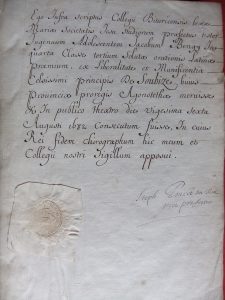 Ego Infra scriptus Collegii Bituricensis beatæ
Mariæ Societatis Jesu Indigem præfectus testor
Ingenuum Adolescentem Jacobum
Quarta Classis tertium Solutæ orationis latinæ
præmium, ex liberalitate et Munificentia
Celsissimi principis De Soubize huius
Provinciæ proregis Agonothetæ meruisse
& In publico theatro die Vigesima Sexta
Augusti 1682 Consecutum fuisse, In cuius
Rei fidem chirographum hic meum et
Collegii nostri Sigillum apposui.
Joseph